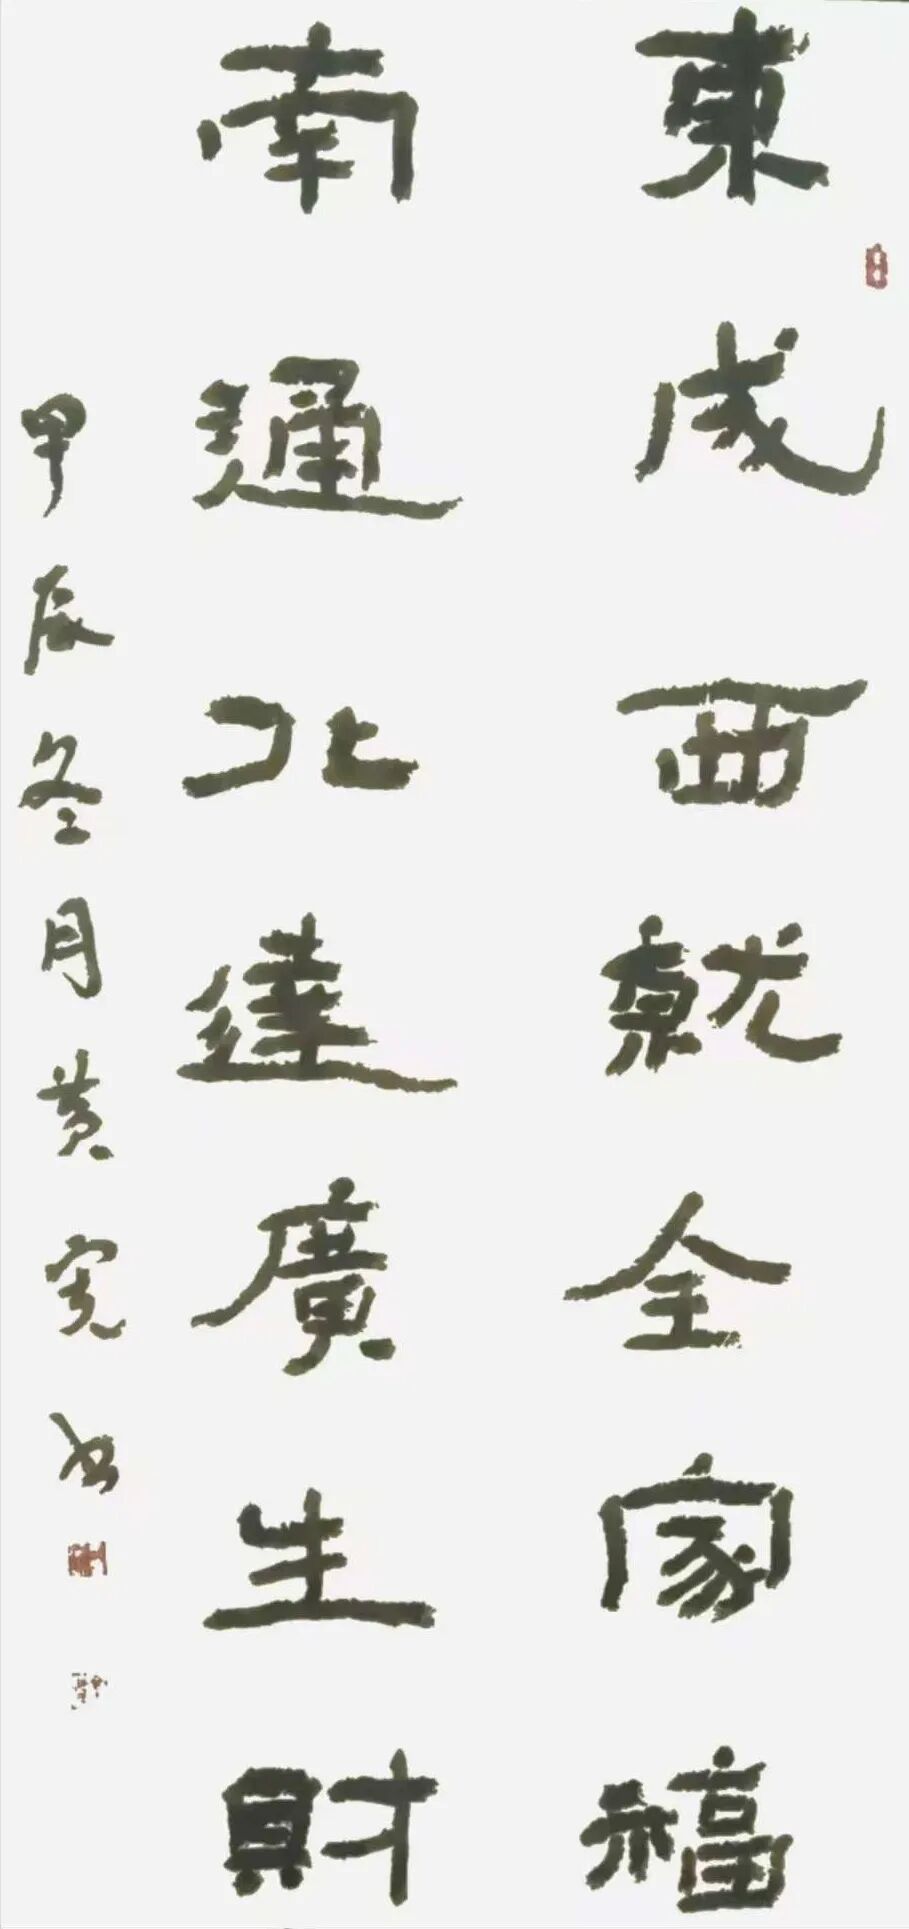 東成西就全家福
南通北達廣生財
甲辰冬月黄宪书